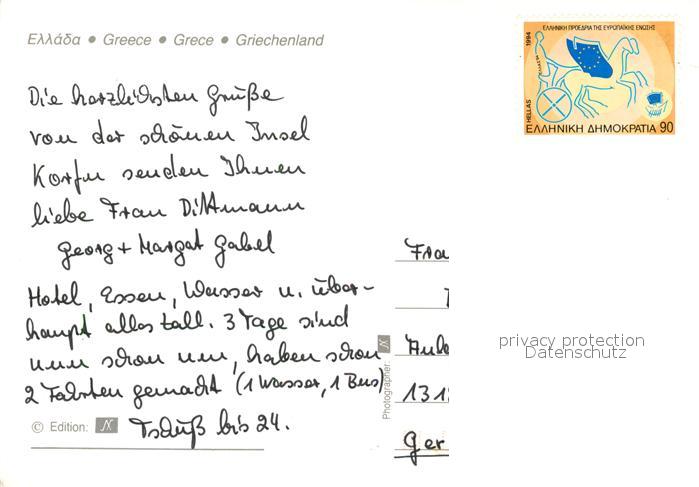 Ελλάδα • Greece • Grece • Griechenland
ΕΛΛΗΝΙΚΗ ΠΡΟΕΔΡΙΑ ΤΗΣ ΕΥΡΩΠΑΪΚΗΣ ΕΝΩΣΗΣ
1994
HELLAS
ΕΛΛΗΝΙΚΗ ΔΗΜΟΚΡΑΤΙΑ 90
Die herzlichsten Grüße
von der schönen Insel
Korfu senden Ihnen
liebe Frau Dittmann
Georg + Margat Gabel
Hotel, Essen, Wasser u. über-
haupt alles toll. 3 Tage sind
nun schon um, haben schon
2 Fahrten gemacht (1 Wasser, 1 Bus)
Tschüß bis 24.
© Edition: N
Photographer: N
Frau
131
Ger
privacy protection
Datenschutz